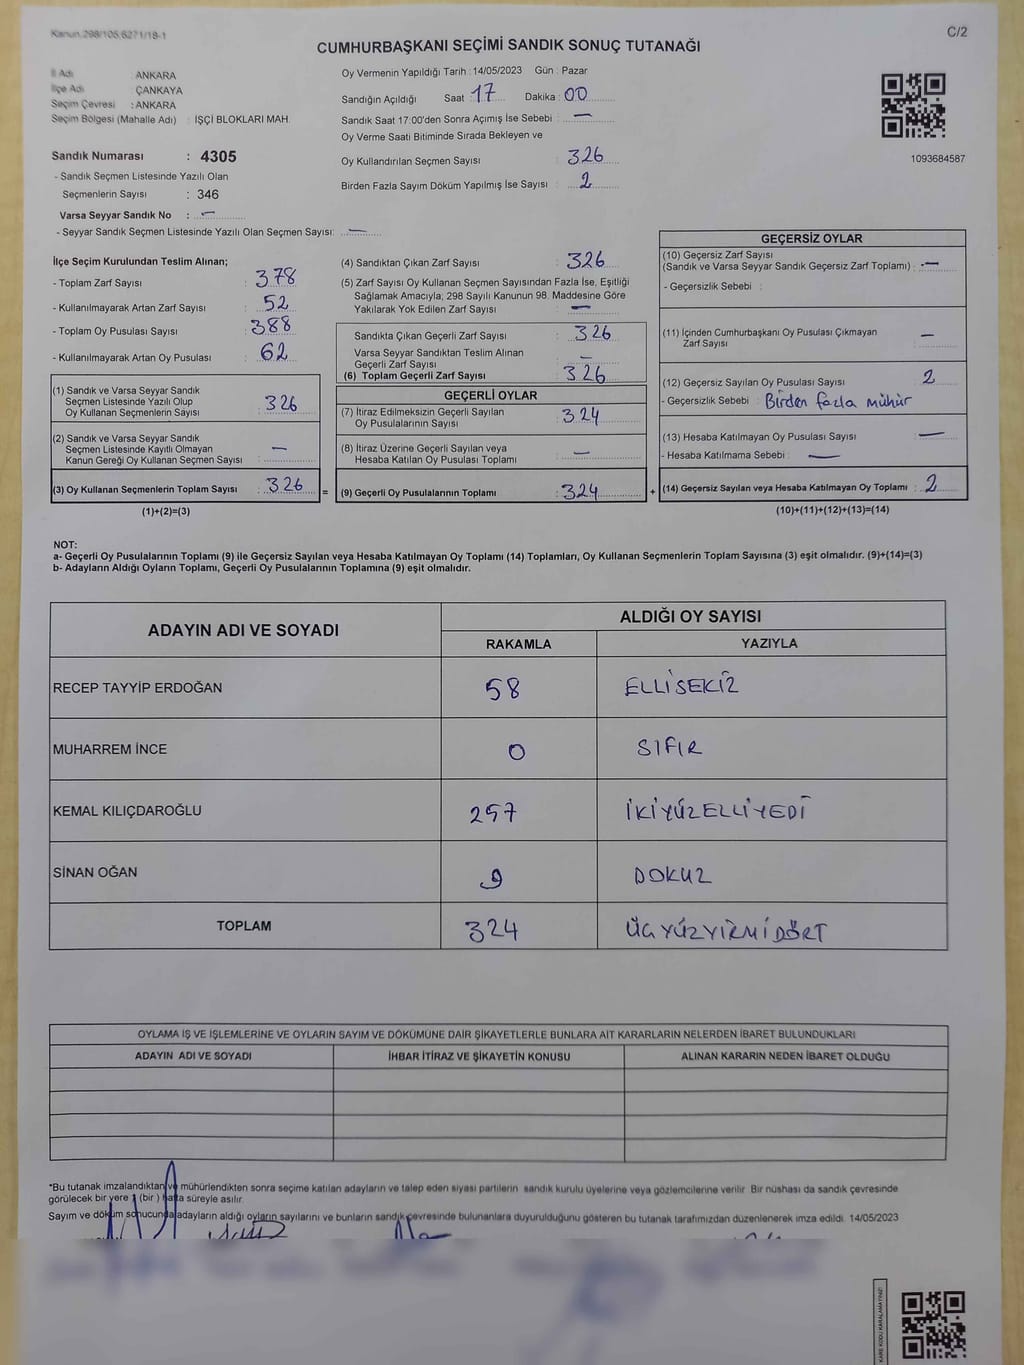 Kanun.298/105,6271/18-1
C/2
CUMHURBAŞKANI SEÇİMİ SANDIK SONUÇ TUTANAĞI
İl Adı : ANKARA
İlçe Adı : ÇANKAYA
Seçim Çevresi : ANKARA
Seçim Bölgesi (Mahalle Adı) : İŞÇİ BLOKLARI MAH.
Sandık Numarası : 4305
- Sandık Seçmen Listesinde Yazılı Olan
Seçmenlerin Sayısı : 346
Varsa Seyyar Sandık No : —
- Seyyar Sandık Seçmen Listesinde Yazılı Olan Seçmen Sayısı: —
Oy Vermenin Yapıldığı Tarih : 14/05/2023 Gün : Pazar
Sandığın Açıldığı Saat : 17 Dakika : 00
Sandık Saat 17:00'den Sonra Açımış İse Sebebi : —
Oy Verme Saati Bitiminde Sırada Bekleyen ve
Oy Kullandırılan Seçmen Sayısı : 326
Birden Fazla Sayım Döküm Yapılmış İse Sayısı : 2
1093684587
İlçe Seçim Kurulundan Teslim Alınan;
- Toplam Zarf Sayısı : 378
- Kullanılmayarak Artan Zarf Sayısı : 52
- Toplam Oy Pusulası Sayısı : 388
- Kullanılmayarak Artan Oy Pusulası : 62
(1) Sandık ve Varsa Seyyar Sandık
Seçmen Listesinde Yazılı Olup
Oy Kullanan Seçmenlerin Sayısı : 326
(2) Sandık ve Varsa Seyyar Sandık
Seçmen Listesinde Kayıtlı Olmayan
Kanun Gereği Oy Kullanan Seçmen Sayısı : —
(3) Oy Kullanan Seçmenlerin Toplam Sayısı : 326
(1)+(2)=(3)
(4) Sandıktan Çıkan Zarf Sayısı : 326
(5) Zarf Sayısı Oy Kullanan Seçmen Sayısından Fazla İse, Eşitliği
Sağlamak Amacıyla; 298 Sayılı Kanunun 98. Maddesine Göre
Yakılarak Yok Edilen Zarf Sayısı : —
Sandıkta Çıkan Geçerli Zarf Sayısı : 326
Varsa Seyyar Sandıktan Teslim Alınan
Geçerli Zarf Sayısı : —
(6) Toplam Geçerli Zarf Sayısı : 326
GEÇERLİ OYLAR
(7) İtiraz Edilmeksizin Geçerli Sayılan
Oy Pusulalarının Sayısı : 324
(8) İtiraz Üzerine Geçerli Sayılan veya
Hesaba Katılan Oy Pusulası Toplamı : —
= (9) Geçerli Oy Pusulalarının Toplamı : 324
GEÇERSİZ OYLAR
(10) Geçersiz Zarf Sayısı
(Sandık ve Varsa Seyyar Sandık Geçersiz Zarf Toplamı) : —
- Geçersizlik Sebebi :
(11) İçinden Cumhurbaşkanı Oy Pusulası Çıkmayan
Zarf Sayısı : —
(12) Geçersiz Sayılan Oy Pusulası Sayısı : 2
- Geçersizlik Sebebi : Birden fazla mühür
(13) Hesaba Katılmayan Oy Pusulası Sayısı : —
- Hesaba Katılmama Sebebi : —
+ (14) Geçersiz Sayılan veya Hesaba Katılmayan Oy Toplamı : 2
(10)+(11)+(12)+(13)=(14)
NOT:
a- Geçerli Oy Pusulalarının Toplamı (9) ile Geçersiz Sayılan veya Hesaba Katılmayan Oy Toplamı (14) Toplamları, Oy Kullanan Seçmenlerin Toplam Sayısına (3) eşit olmalıdır. (9)+(14)=(3)
b- Adayların Aldığı Oyların Toplamı, Geçerli Oy Pusulalarının Toplamına (9) eşit olmalıdır.
ADAYIN ADI VE SOYADI
ALDIĞI OY SAYISI
RAKAMLA YAZIYLA
RECEP TAYYİP ERDOĞAN 58 ELLİSEKİZ
MUHARREM İNCE 0 SIFIR
KEMAL KILIÇDAROĞLU 257 İKİYÜZELLİYEDİ
SİNAN OĞAN 9 DOKUZ
TOPLAM 324 ÜÇYÜZYİRMİDÖRT
OYLAMA İŞ VE İŞLEMLERİNE VE OYLARIN SAYIM VE DÖKÜMÜNE DAİR ŞİKAYETLERLE BUNLARA AİT KARARLARIN NELERDEN İBARET BULUNDUKLARI
ADAYIN ADI VE SOYADI İHBAR İTİRAZ VE ŞİKAYETİN KONUSU ALINAN KARARIN NEDEN İBARET OLDUĞU
*Bu tutanak imzalandıktan ve mühürlendikten sonra seçime katılan adayların ve talep eden siyasi partilerin sandık kurulu üyelerine veya gözlemcilerine verilir. Bir nüshası da sandık çevresinde
görülecek bir yere 1 (bir) hafta süreyle asılır.
Sayım ve döküm sonucunda adayların aldığı oyların sayılarını ve bunların sandık çevresinde bulunanlara duyurulduğunu gösteren bu tutanak tarafımızdan düzenlenerek imza edildi. 14/05/2023
KARE KODU KARALAMAYINIZ!